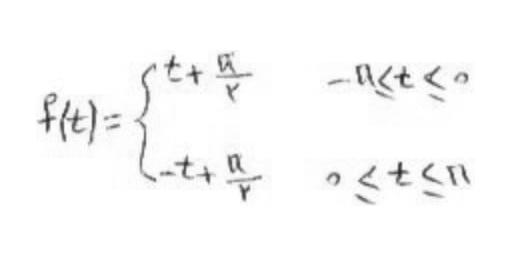 f(t) = { t + π/۲    -π ≤ t ≤ ۰
       { -t + π/۲    ۰ ≤ t ≤ π